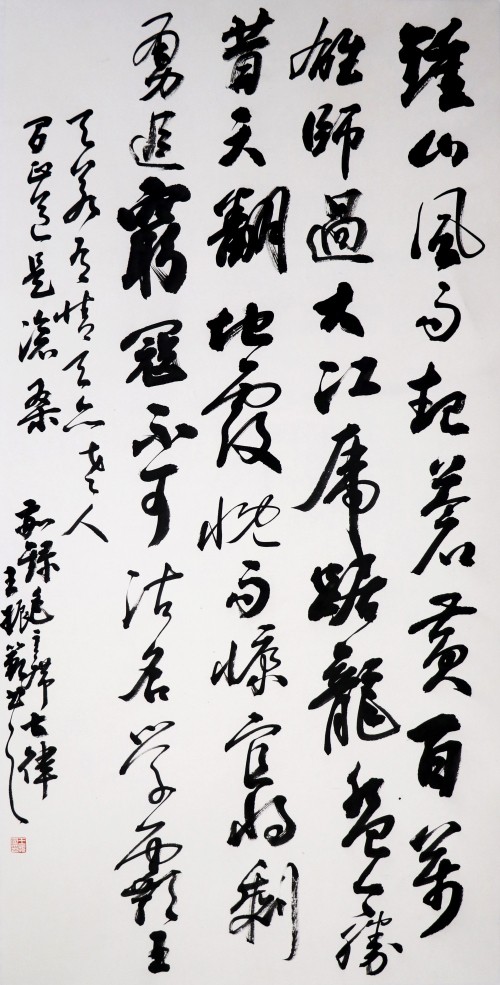 鍾山風雨起蒼黄百萬
雄師過大江虎踞龍盤今勝
昔天翻地覆慨而慷宜將剩
勇追窮寇不可沽名學霸王
天若有情天亦老人
间正道是滄桑
錄毛主席七律
王振书